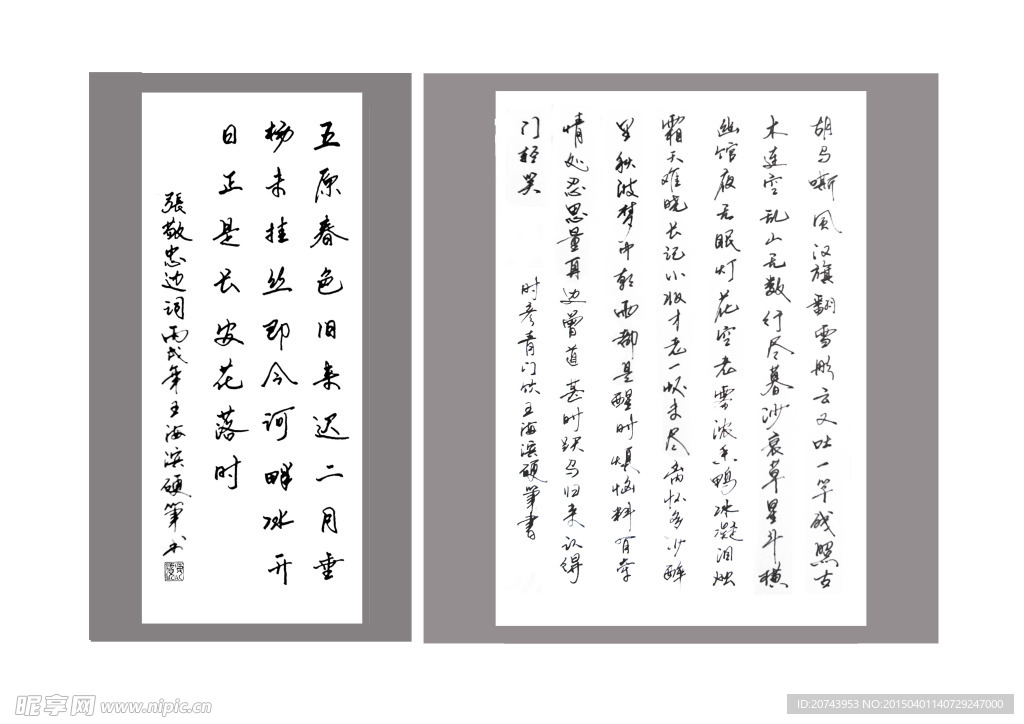 五原春色旧来迟二月垂
杨未挂丝即今河畔冰开
日正是长安花落时
張敬忠边词丙戌年王海滨硬筆书
胡马嘶风汉旗翻雪彤云又吐一竿残照古
木连空乱山无数行尽暮沙衰草星斗横
幽馆夜无眠灯花空老雾浓香鸭冰凝泪烛
霜天难晓长记小妆才老一杯未尽离怀多少醉
里秋波梦中朝雨都是醒时烦恼料有牵
情处忍思量耳边曾道甚时跃马归来认得
门轻笑
时彦青门饮王海滨硬筆書
昵享网 www.nipic.cn
ID:20743953 NO:20150401140729247000